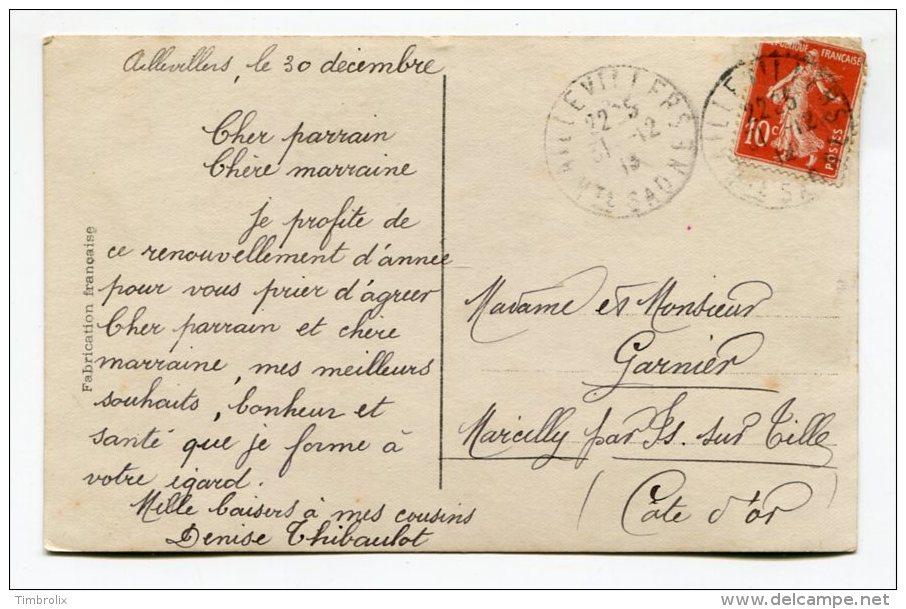 Aillevillers, le 30 décembre
Cher parrain
Chère marraine
Je profite de
ce renouvellement d'année
pour vous prier d'agréer
Cher parrain et chère
marraine, mes meilleurs
souhaits, bonheur et
santé que je forme à
votre égard.
Mille baisers à mes cousins
Denise Thibaulot
Fabrication française
AILLEVILLERS
22-35
31-12
14
HTE SAONE
REPUBLIQUE FRANÇAISE
10c
POSTES
Madame et Monsieur
Garnier
Marcilly par Is. sur Tille
(Côte d'or)
Timbrolix
delcampe.net